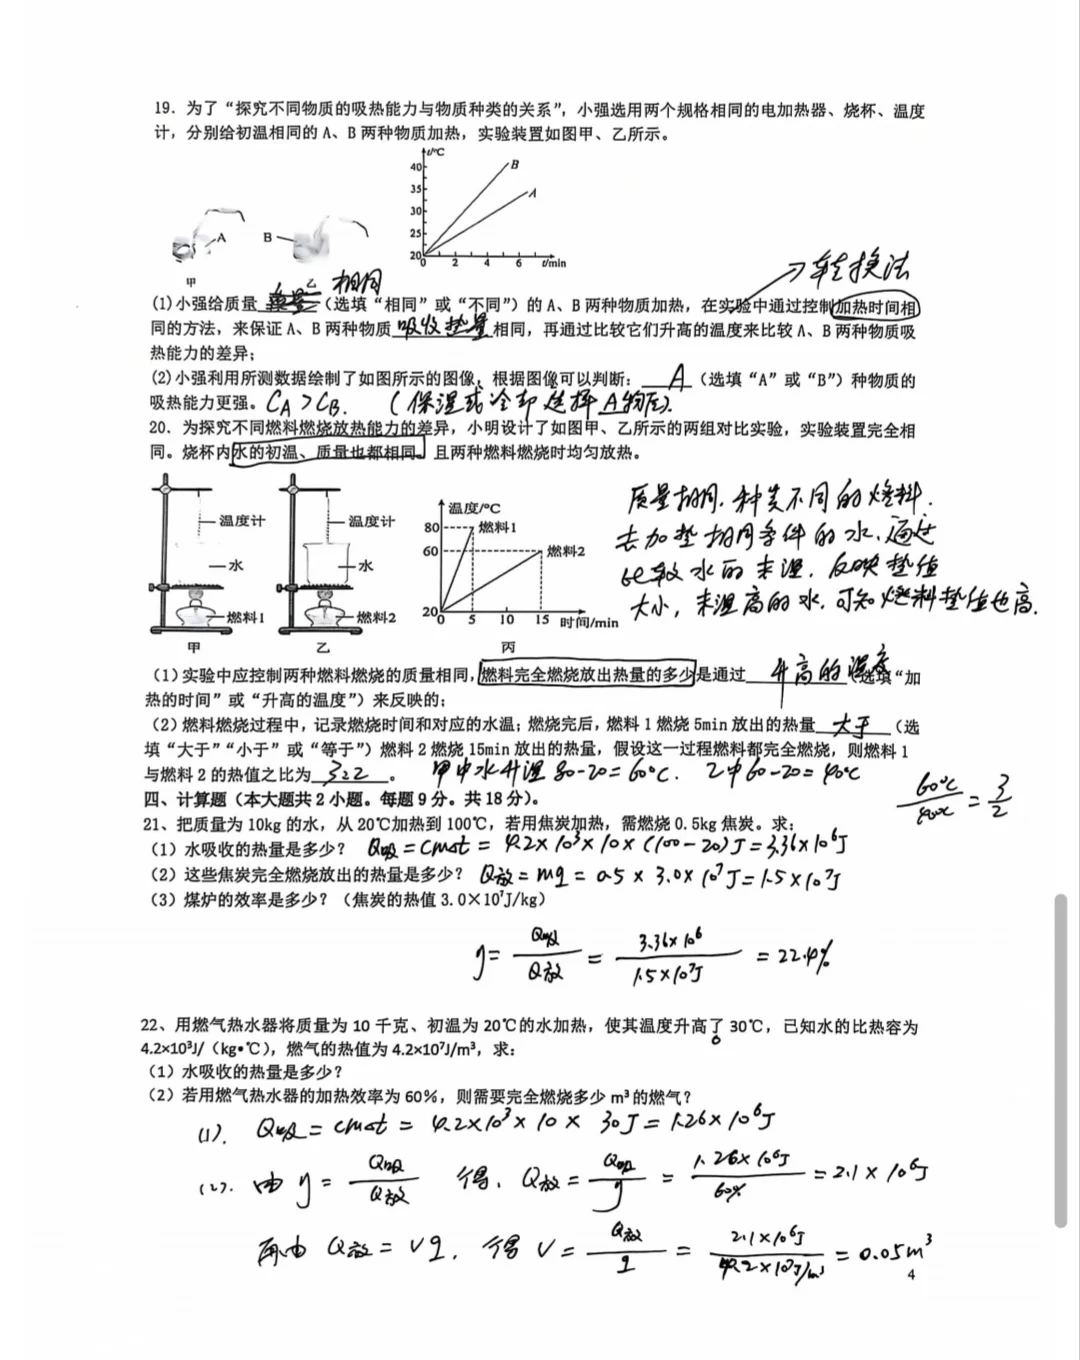 19. 为了“探究不同物质的吸热能力与物质种类的关系”，小强选用两个规格相同的电加热器、烧杯、温度
计，分别给初温相同的 A、B 两种物质加热，实验装置如图甲、乙所示。
t/℃
40
35
30
25
20
0 2 4 6 t/min
B
A
A
B
甲
乙
相同
→转换法
(1)小强给质量 （选填“相同”或“不同”）的 A、B 两种物质加热，在实验中通过控制加热时间相
同的方法，来保证 A、B 两种物质 吸收热量 相同，再通过比较它们升高的温度来比较 A、B 两种物质吸
热能力的差异；
(2)小强利用所测数据绘制了如图所示的图像，根据图像可以判断： A （选填“A”或“B”）种物质的
吸热能力更强。CA＞CB. （保温或冷却选择A物质）.
20. 为探究不同燃料燃烧放热能力的差异，小明设计了如图甲、乙所示的两组对比实验，实验装置完全相
同。烧杯内水的初温、质量也都相同，且两种燃料燃烧时均匀放热。
温度计
水
燃料1
甲
温度计
水
燃料2
乙
温度/℃
80
60
20
0 5 10 15 时间/min
燃料1
燃料2
丙
质量相同，种类不同的燃料.
去加热相同条件的水，通过
比较水的末温，反映热值
大小，末温高的水，可知燃料热值也高.
(1)实验中应控制两种燃料燃烧的质量相同，燃料完全燃烧放出热量的多少是通过 升高的温度 （选填“加
热的时间”或“升高的温度”）来反映的；
(2)燃料燃烧过程中，记录燃烧时间和对应的水温；燃烧完后，燃料 1 燃烧 5min 放出的热量 大于 （选
填“大于”“小于”或“等于”）燃料 2 燃烧 15min 放出的热量，假设这一过程燃料都完全燃烧，则燃料 1
与燃料 2 的热值之比为 3:2 。 甲中水升温 80-20=60℃. 乙中60-20=40℃
60℃/40℃ = 3/2
四、计算题（本大题共 2 小题。每题 9 分。共 18 分）。
21、把质量为 10kg 的水，从 20℃加热到 100℃，若用焦炭加热，需燃烧 0.5kg 焦炭。求：
（1）水吸收的热量是多少？ Q吸=cmΔt = 4.2×10³×10×(100-20)J=3.36×10⁶J
（2）这些焦炭完全燃烧放出的热量是多少？ Q放=mq = 0.5 × 3.0×10⁷J=1.5×10⁷J
（3）煤炉的效率是多少？（焦炭的热值 3.0×10⁷J/kg）
η= Q吸/Q放 = 3.36×10⁶/1.5×10⁷J = 22.4%
22、用燃气热水器将质量为 10 千克、初温为 20℃的水加热，使其温度升高了 30℃，已知水的比热容为
4.2×10³J/（kg•℃），燃气的热值为 4.2×10⁷J/m³，求：
（1）水吸收的热量是多少？
（2）若用燃气热水器的加热效率为 60%，则需要完全燃烧多少 m³ 的燃气？
(1). Q吸=cmΔt = 4.2×10³×10 × 30J=1.26×10⁶J
(2). 由η= Q吸/Q放 得，Q放= Q吸/η = 1.26×10⁶J/60% =2.1×10⁶J
再由 Q放=Vq，得V= Q放/q = 2.1×10⁶J/4.2×10⁷J/m³ = 0.05m³
4